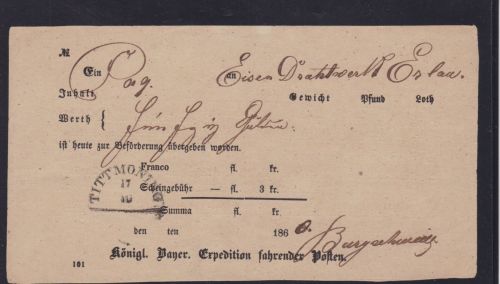 №
Ein Pag. an Eisen Drahtwerk Erlau.
Inhalt, Gewicht Pfund Loth
Werth { fünfzig Gulden.
ist heute zur Beförderung übergeben worden.
Franco fl. kr.
Scheingebühr — fl. 3 kr.
Summa fl. kr.
TITTMONING
17
10
den ten 186
Königl. Bayer. Expedition fahrender Posten.
101